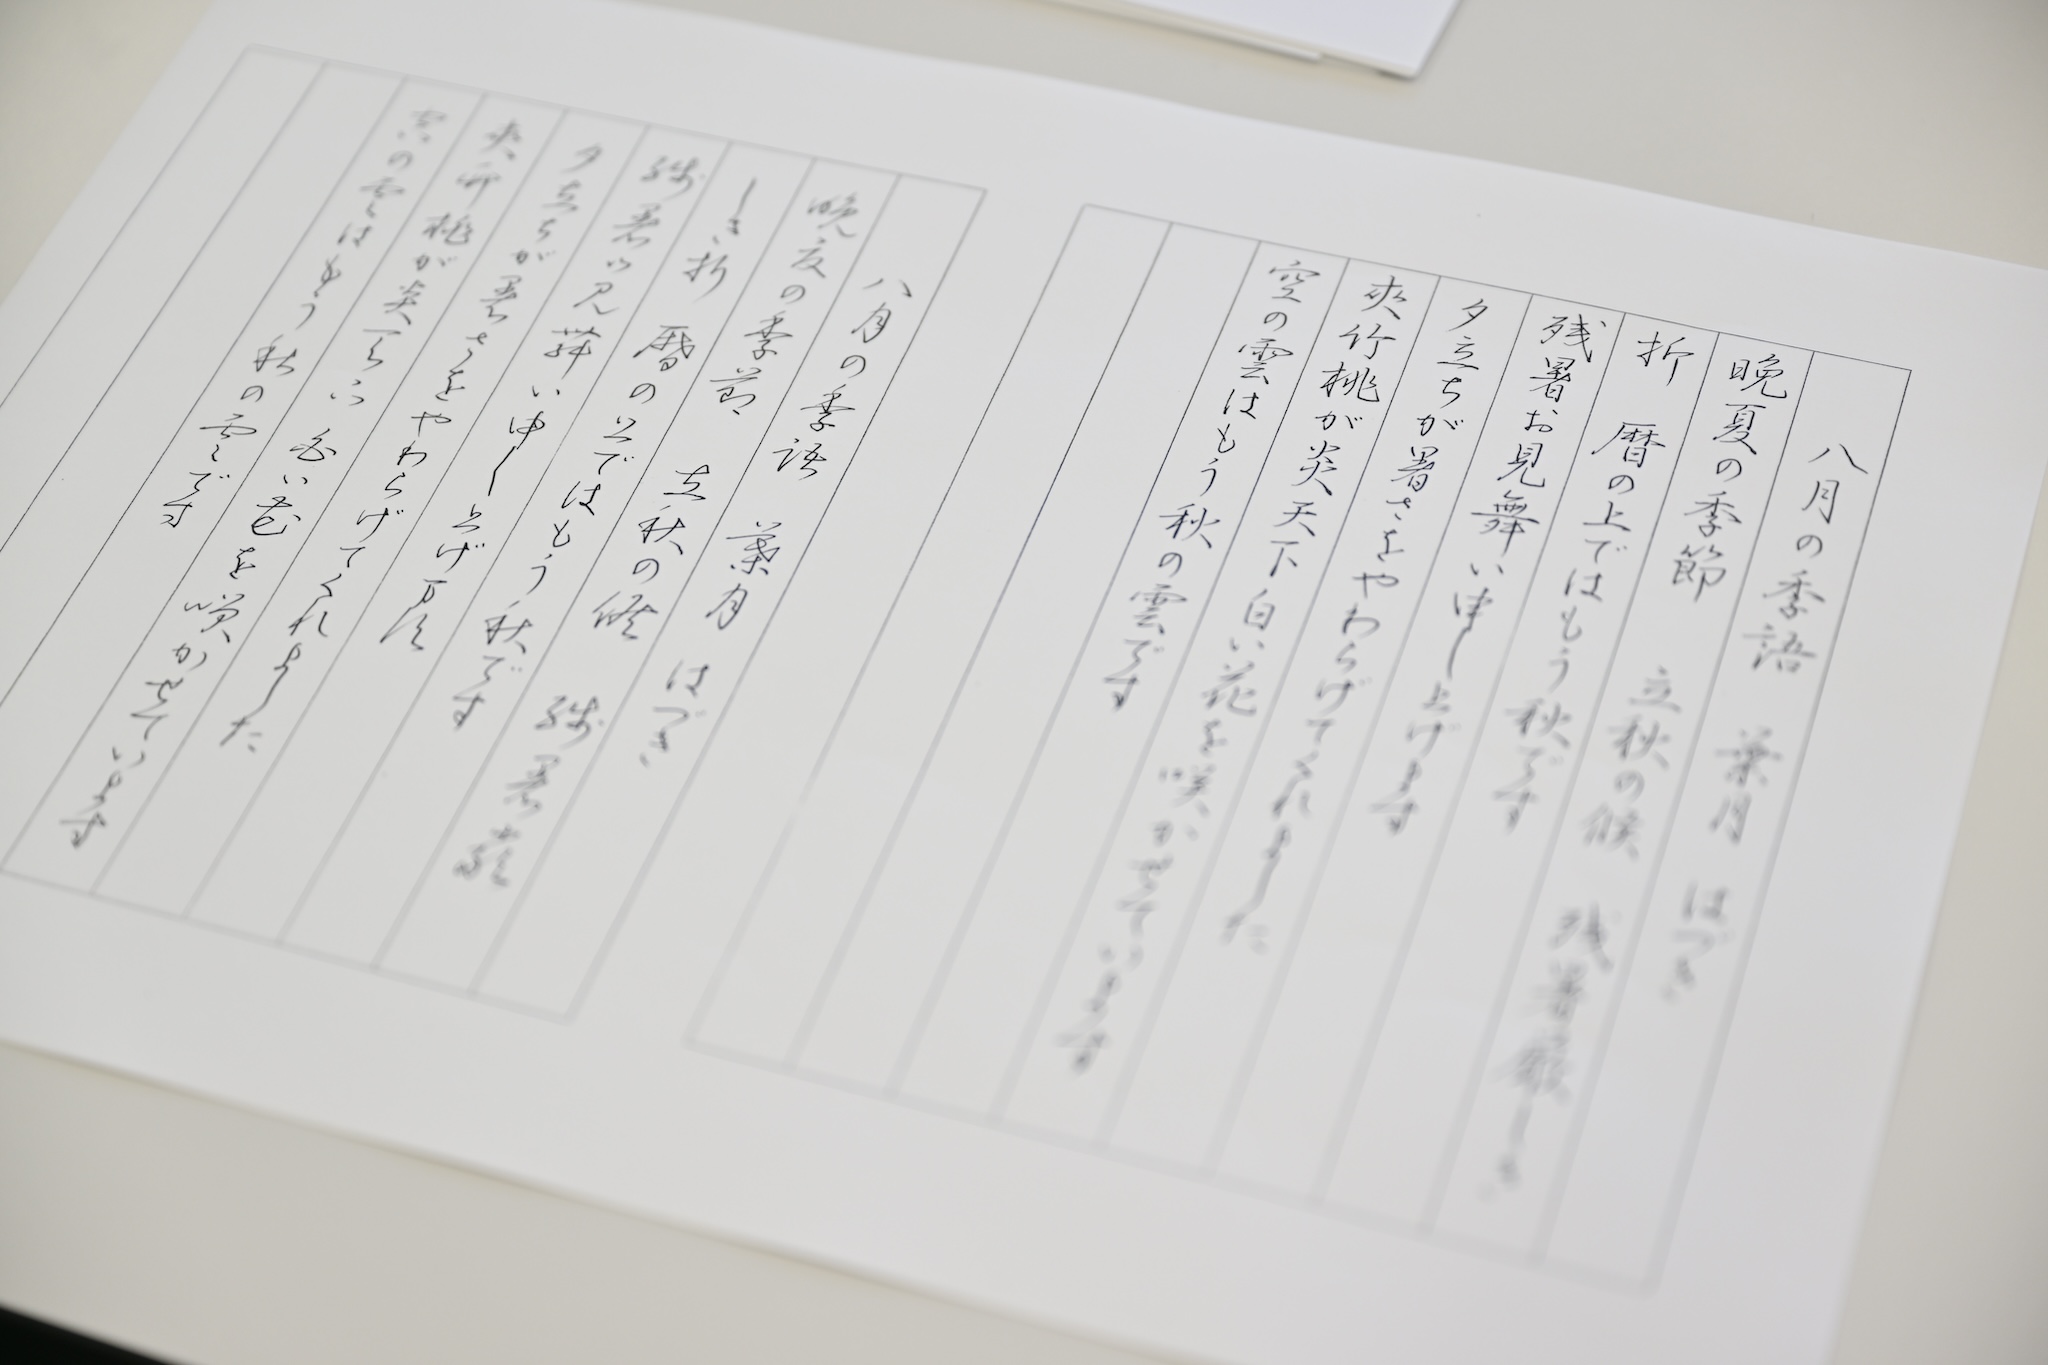 八月の季語　葉月　はづき
晩夏の季節　立秋の候　残暑厳しき
折　暦の上ではもう秋です
残暑お見舞い申し上げます
夕立ちが暑さをやわらげてくれました
夾竹桃が炎天下白い花を咲かせています
空の雲はもう秋の雲です
八月の季語　葉月　はづき
晩夏の季節　立秋の候　残暑厳
しき折　暦の上ではもう秋です
残暑お見舞い申し上げます
夕立ちが暑さをやわらげてくれました
夾竹桃が炎天下白い花を咲かせています
空の雲はもう秋の雲です